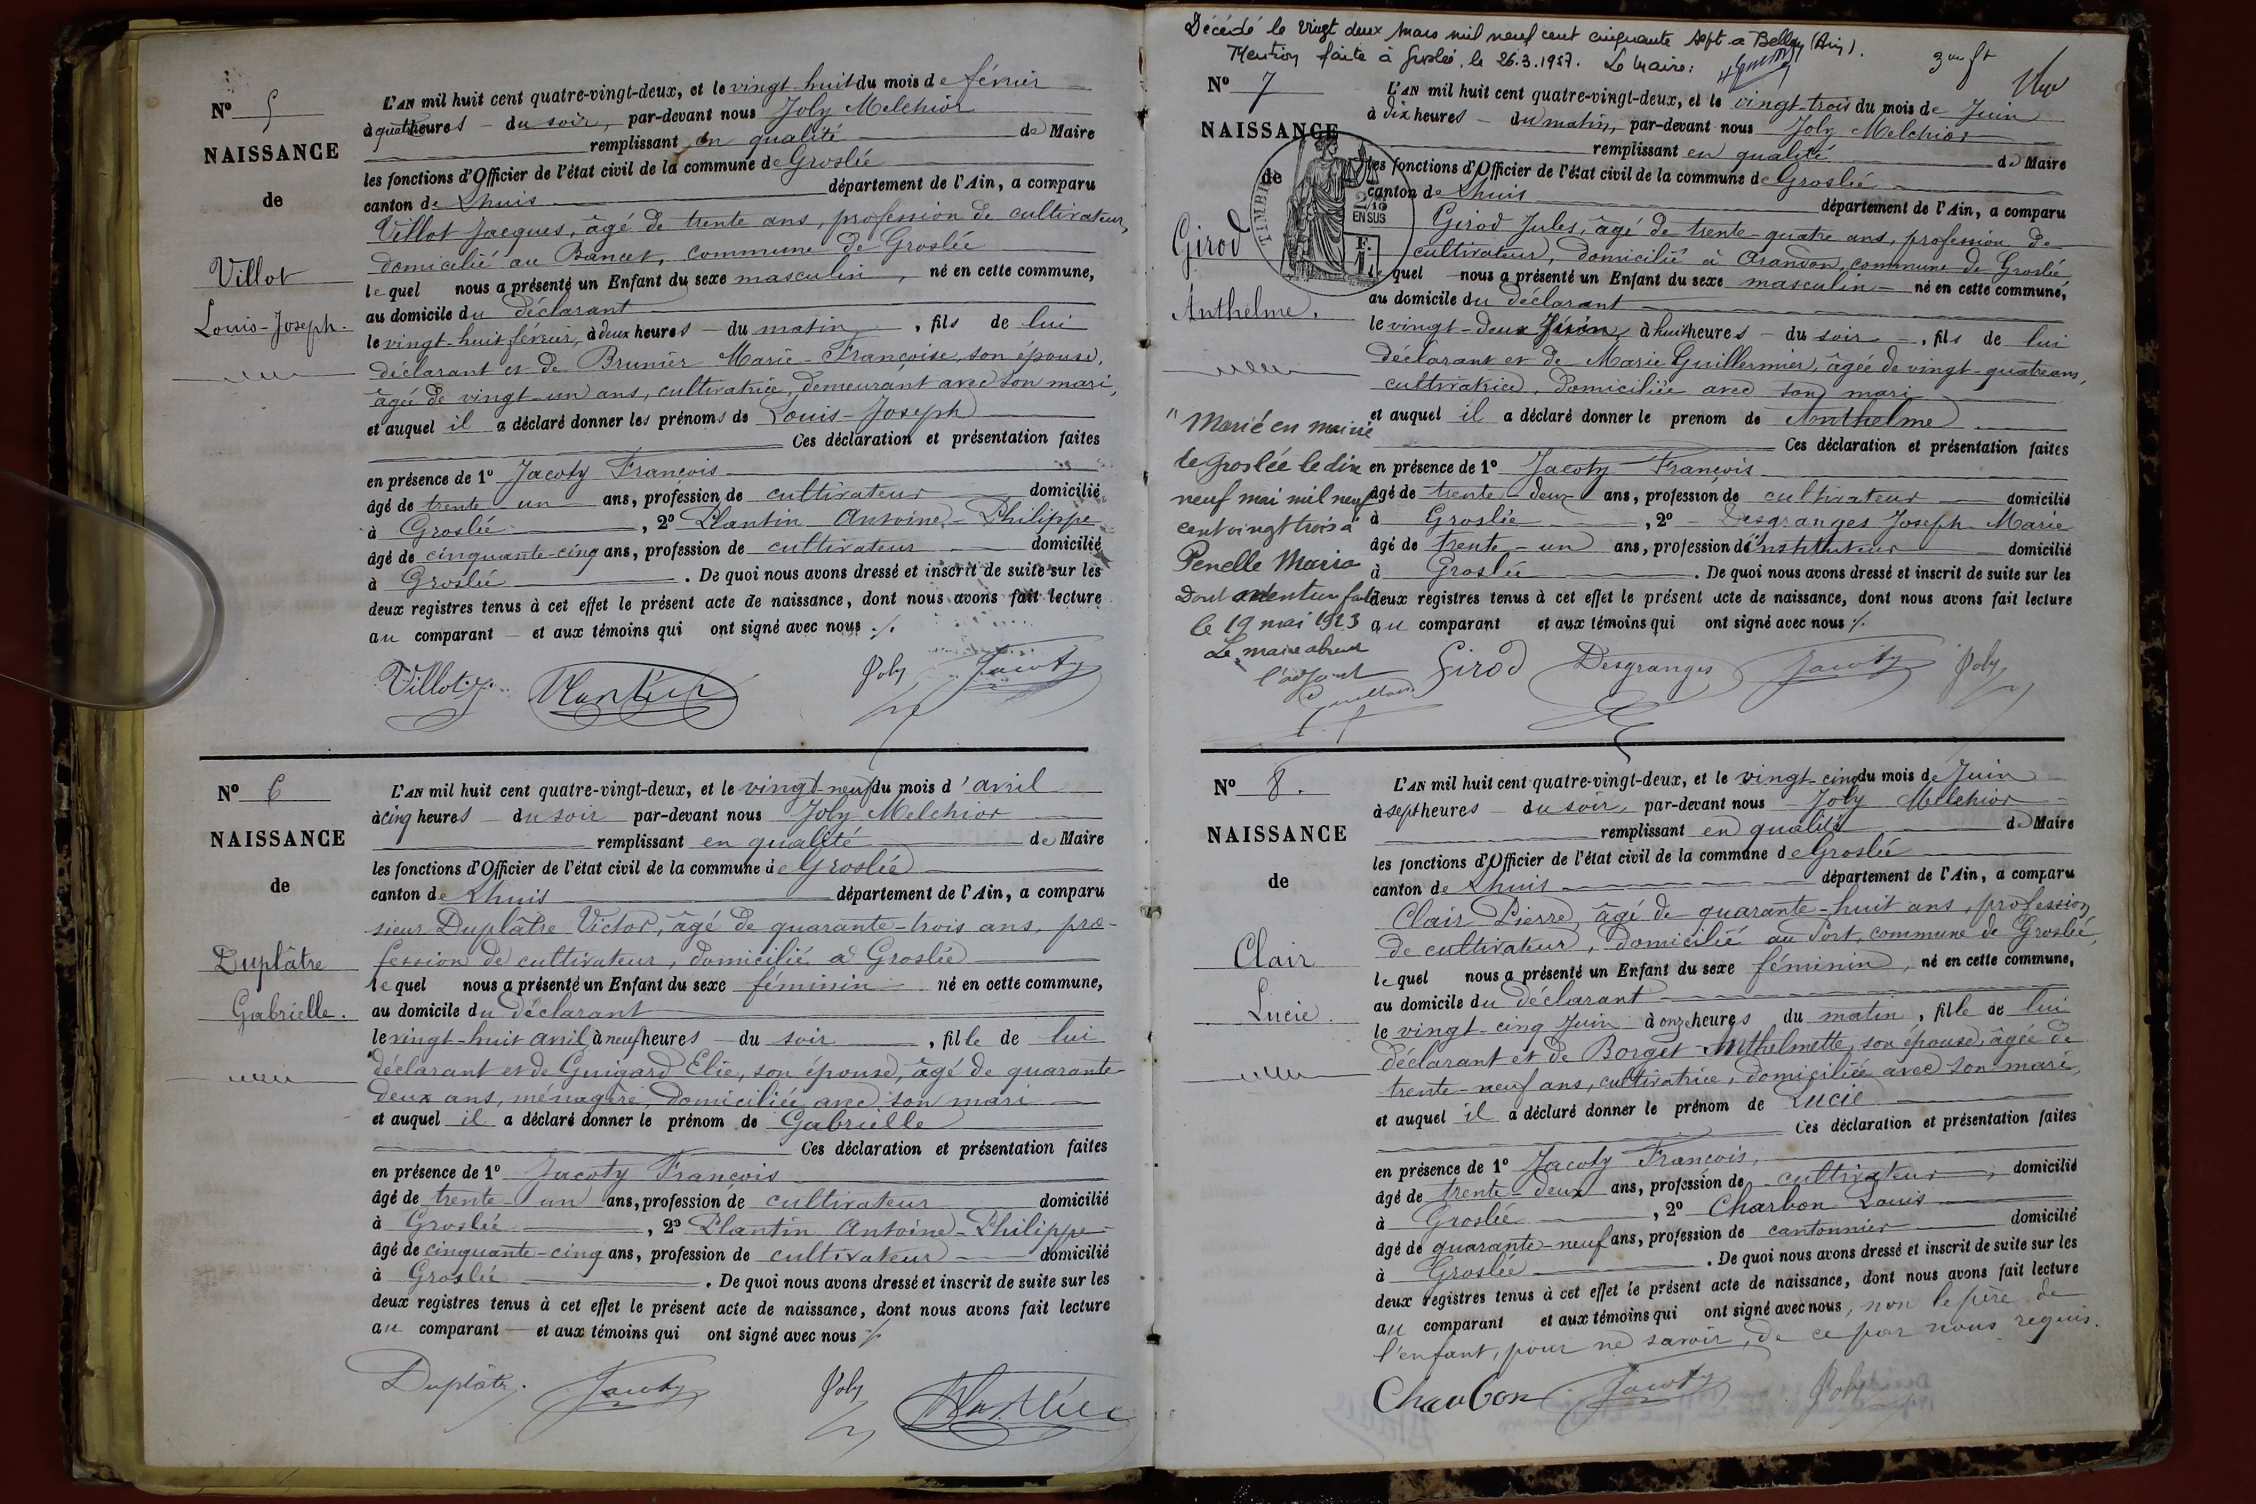 N° 5
NAISSANCE
de
Villot
Louis-Joseph.
L'AN mil huit cent quatre-vingt-deux, et le vingt-huit du mois de février
à quatre heures du soir, par-devant nous Joly Melchior
remplissant en qualité de Maire
les fonctions d'Officier de l'état civil de la commune de Groslée
canton de Lhuis département de l'Ain, a comparu
Villot Jacques, âgé de trente ans, profession de cultivateur,
domicilié au Bancet, commune de Groslée
lequel nous a présenté un Enfant du sexe masculin, né en cette commune,
au domicile du déclarant
le vingt-huit février, à deux heures du matin, fils de lui
déclarant et de Brunier Marie-Françoise, son épouse,
âgée de vingt-un ans, cultivatrice, demeurant avec son mari,
et auquel il a déclaré donner les prénoms de Louis-Joseph
Ces déclaration et présentation faites
en présence de 1° Jacoty François
âgé de trente-un ans, profession de cultivateur domicilié
à Groslée, 2° Plantin Antoine-Philippe
âgé de cinquante-cinq ans, profession de cultivateur domicilié
à Groslée. De quoi nous avons dressé et inscrit de suite sur les
deux registres tenus à cet effet le présent acte de naissance, dont nous avons fait lecture
au comparant et aux témoins qui ont signé avec nous ./.
Villot J. Plantin Joly Jacoty
N° 6
NAISSANCE
de
Duplâtre
Gabrielle.
L'AN mil huit cent quatre-vingt-deux, et le vingt-neuf du mois d'avril
à cinq heures du soir par-devant nous Joly Melchior
remplissant en qualité de Maire
les fonctions d'Officier de l'état civil de la commune de Groslée
canton de Lhuis département de l'Ain, a comparu
sieur Duplâtre Victor, âgé de quarante-trois ans, pro-
fession de cultivateur, domicilié à Groslée
lequel nous a présenté un Enfant du sexe féminin né en cette commune,
au domicile du déclarant
le vingt-huit avril, à neuf heures du soir, fille de lui
déclarant et de Guigard Elie, son épouse, âgé de quarante-
deux ans, ménagère, domiciliée avec son mari
et auquel il a déclaré donner le prénom de Gabrielle
Ces déclaration et présentation faites
en présence de 1° Jacoty François
âgé de trente-un ans, profession de cultivateur domicilié
à Groslée, 2° Plantin Antoine-Philippe
âgé de cinquante-cinq ans, profession de cultivateur domicilié
à Groslée. De quoi nous avons dressé et inscrit de suite sur les
deux registres tenus à cet effet le présent acte de naissance, dont nous avons fait lecture
au comparant et aux témoins qui ont signé avec nous ./.
Duplâtre Jacoty Joly Plantin
Décédé le vingt deux Mars mil neuf cent cinquante sept à Belley (Ain).
Mention faite à Groslée, le 26.3.1957. Le Maire:
N° 7
NAISSANCE
de
TIMBRE
2/10
EN SUS
Girod
Anthelme.
"Marié en mairie
de Groslée le dix
neuf mai mil neuf
cent vingt trois à
Penelle Maria
Dont mention faite
le 19 mai 1923
Le maire absent
l'adjoint
L'AN mil huit cent quatre-vingt-deux, et le vingt-trois du mois de Juin
à dix heures du matin, par-devant nous Joly Melchior
remplissant en qualité de Maire
les fonctions d'Officier de l'état civil de la commune de Groslée
canton de Lhuis département de l'Ain, a comparu
Girod Jules, âgé de trente-quatre ans, profession de
cultivateur, domicilié à Arandon, commune de Groslée
lequel nous a présenté un Enfant du sexe masculin né en cette commune,
au domicile du déclarant
le vingt-deux Juin à huit heures du soir, fils de lui
déclarant et de Marie Guillermier, âgée de vingt-quatre ans,
cultivatrice, domiciliée avec son mari
et auquel il a déclaré donner le prenom de Anthelme
Ces déclaration et présentation faites
en présence de 1° Jacoty François
âgé de trente-deux ans, profession de cultivateur domicilié
à Groslée, 2° Desgranges Joseph Marie
âgé de trente-un ans, profession d'instituteur domicilié
à Groslée. De quoi nous avons dressé et inscrit de suite sur les
deux registres tenus à cet effet le présent acte de naissance, dont nous avons fait lecture
au comparant et aux témoins qui ont signé avec nous ./.
Girod Desgranges Jacoty Joly
N° 8.
NAISSANCE
de
Clair
Lucie.
L'AN mil huit cent quatre-vingt-deux, et le vingt-cinq du mois de Juin
à sept heures du soir, par-devant nous Joly Melchior
remplissant en qualité de Maire
les fonctions d'Officier de l'état civil de la commune de Groslée
canton de Lhuis département de l'Ain, a comparu
Clair Pierre, âgé de quarante-huit ans, profession
de cultivateur, domicilié au Port, commune de Groslée,
lequel nous a présenté un Enfant du sexe féminin, né en cette commune,
au domicile du déclarant
le vingt-cinq Juin à onze heures du matin, fille de lui
déclarant et de Borget Anthelmette, son épouse, âgée de
trente-neuf ans, cultivatrice, domiciliée avec son mari,
et auquel il a déclaré donner le prénom de Lucie
Ces déclaration et présentation faites
en présence de 1° Jacoty François,
âgé de trente-deux ans, profession de cultivateur, domicilié
à Groslée, 2° Charbon Louis
âgé de quarante-neuf ans, profession de cantonnier domicilié
à Groslée. De quoi nous avons dressé et inscrit de suite sur les
deux registres tenus à cet effet le présent acte de naissance, dont nous avons fait lecture
au comparant et aux témoins qui ont signé avec nous, non le père de
l'enfant, pour ne savoir, de ce par nous requis.
Charbon Jacoty Joly